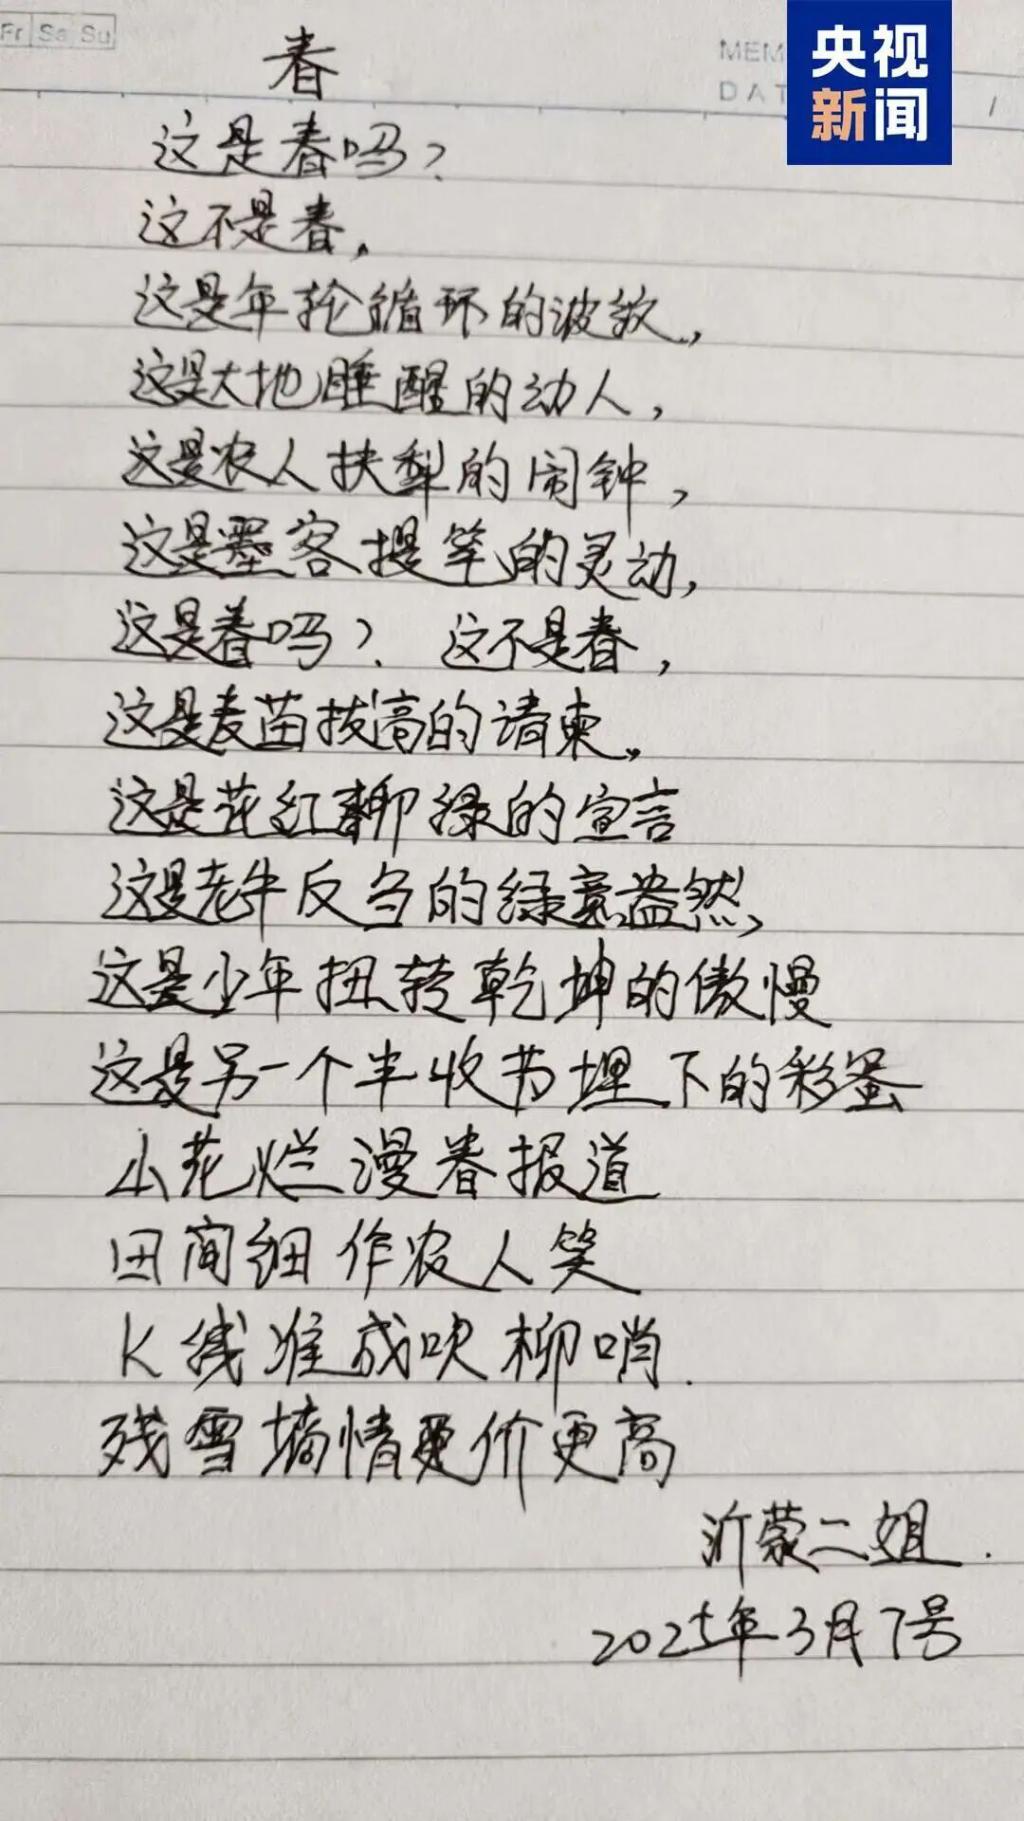 Fr Sa Su
央视
新闻
春
这是春吗？
这不是春，
这是年轮循环的波纹，
这是大地睡醒的动人，
这是农人扶犁的闹钟，
这是墨客提笔的灵动，
这是春吗？ 这不是春，
这是麦苗拔高的请柬，
这是花红柳绿的宣言
这是老牛反刍的绿意盎然，
这是少年扭转乾坤的傲慢
这是另一个丰收节埋下的彩蛋
山花烂漫春报道
田间细作农人笑
K线谁成吹柳哨.
残雪墒情更价更高
沂蒙二姐.
2025年3月7号